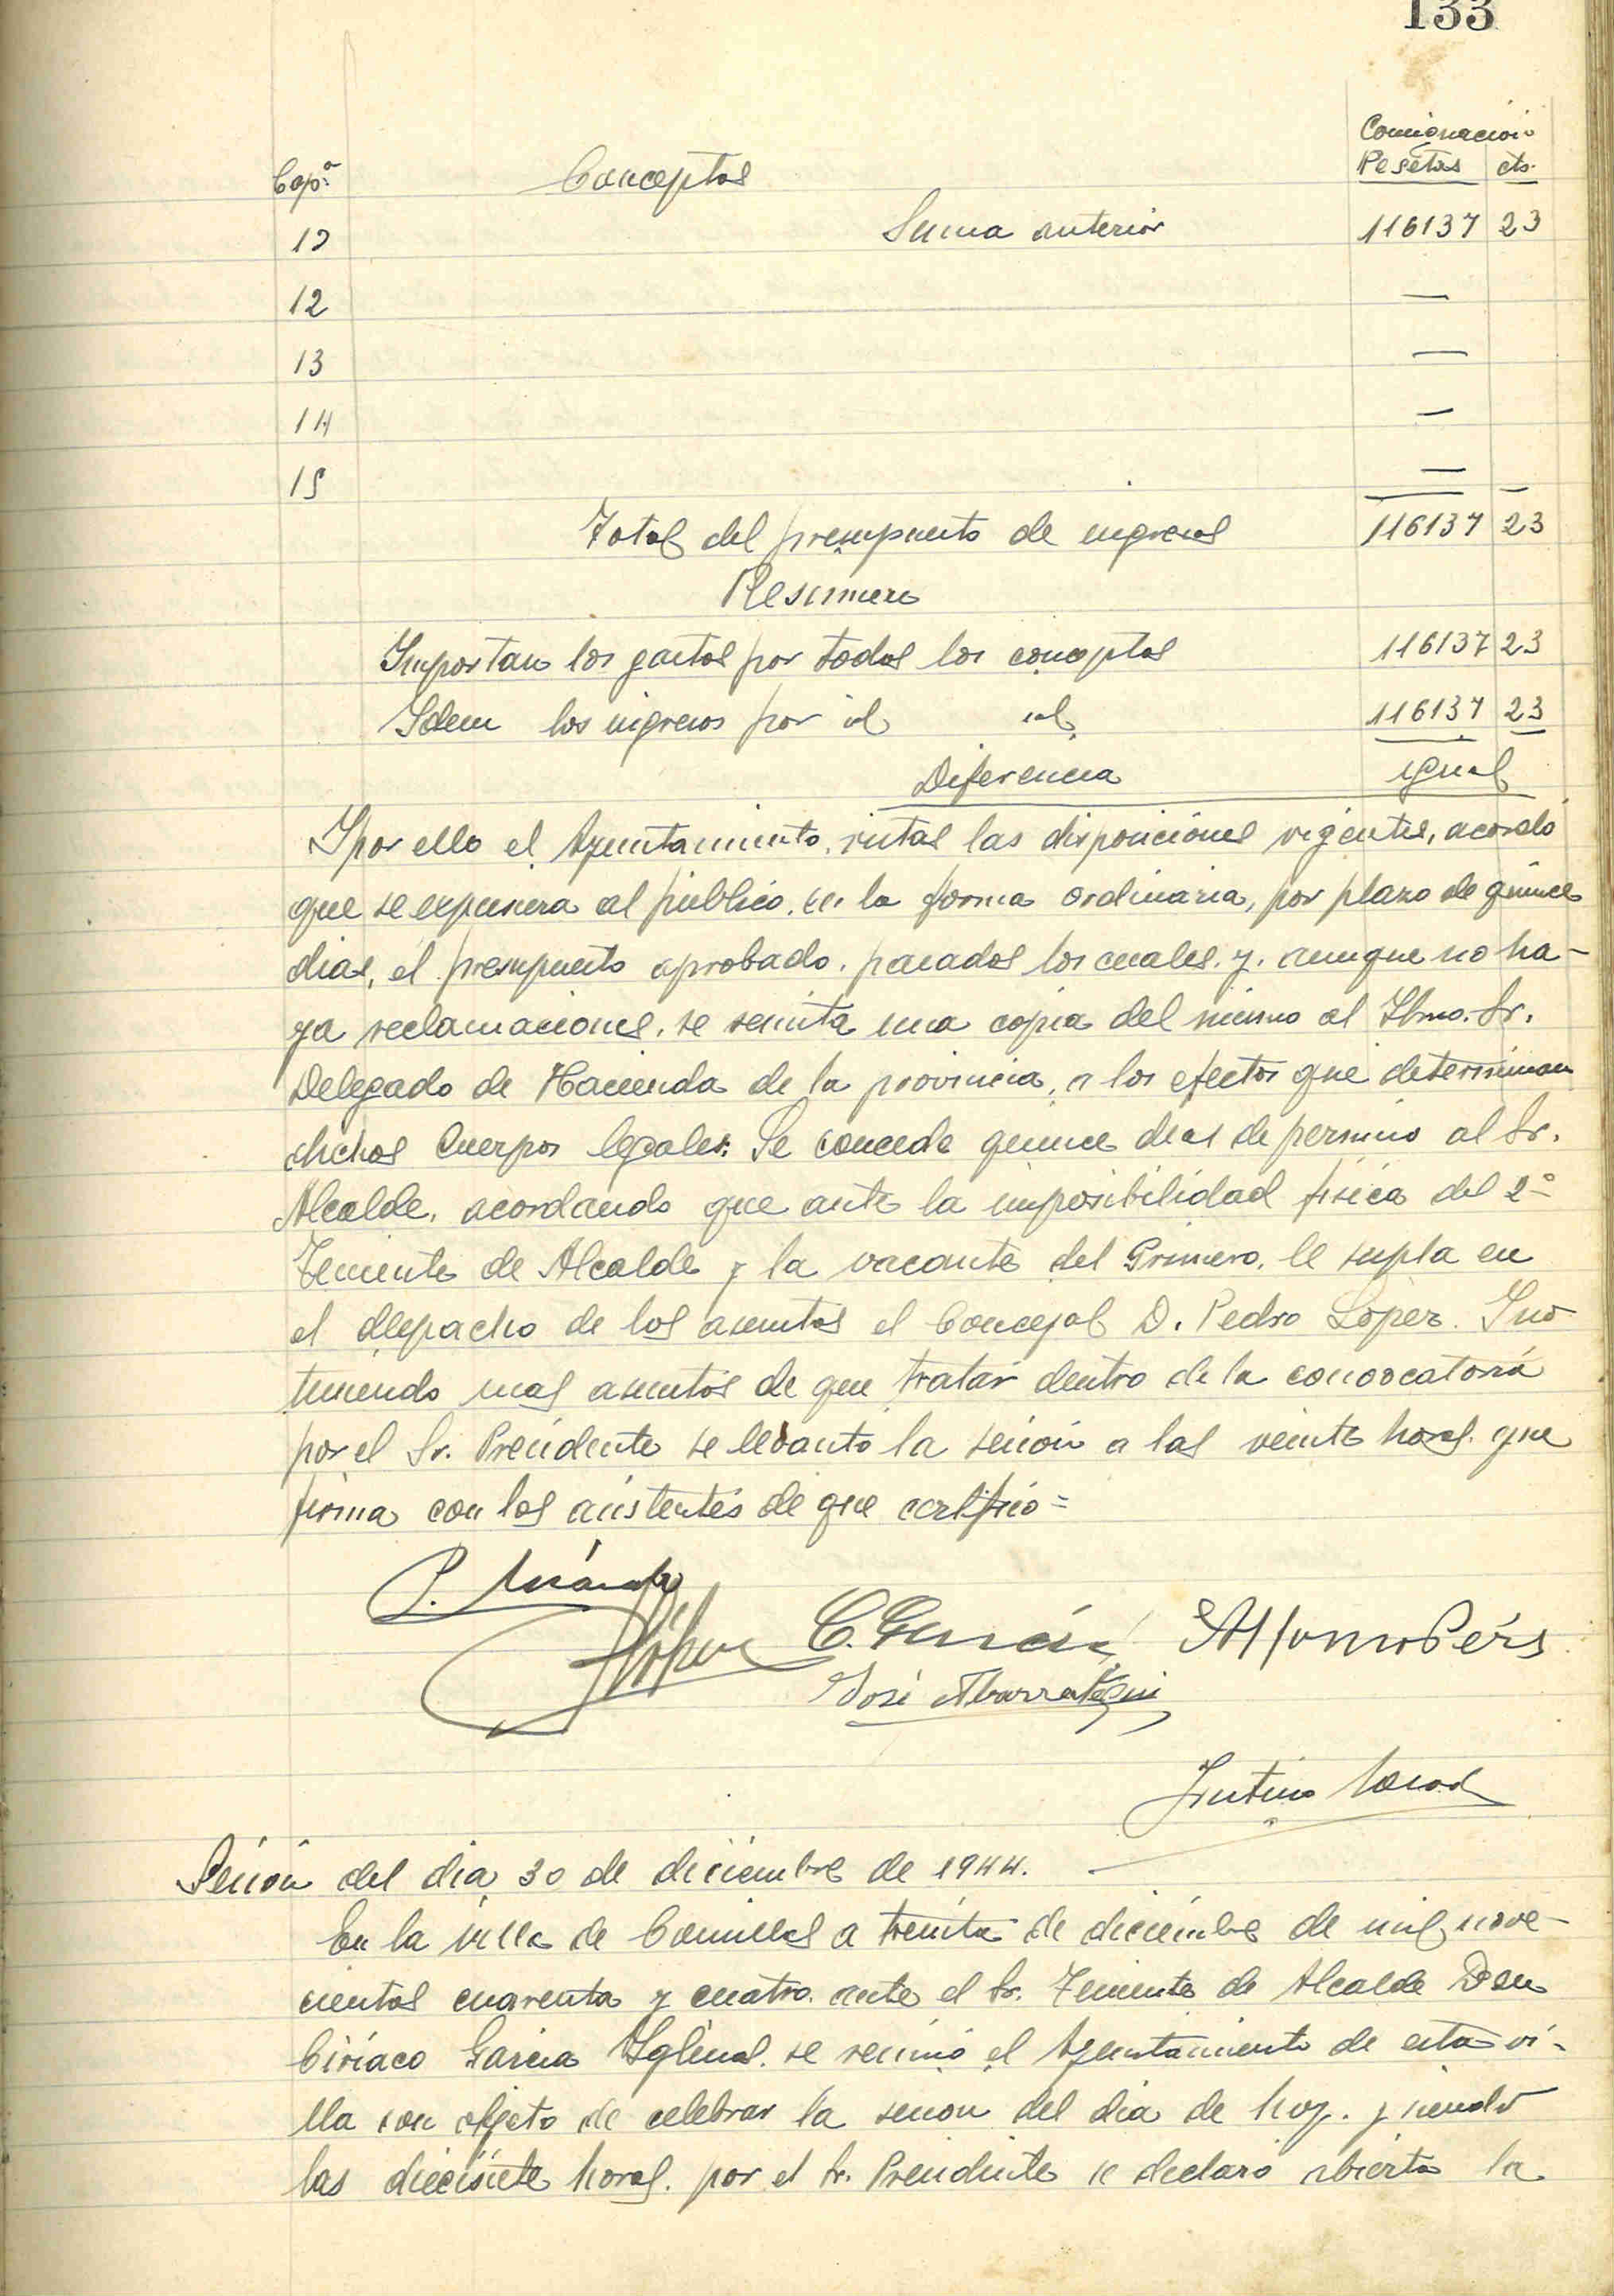 133
Consignación
Capº Conceptos Pesetas cts.
12 Suma anterior 116137 23
12 —
13 —
14 —
15 — —
Total del presupuesto de ingresos 116137 23
Resumen
Importan los gastos por todos los conceptos 116137 23
Idem los ingresos por id id. 116137 23
Diferencia igual
Y por ello el Ayuntamiento, vistas las disposiciones vigentes, acordó
que se expusiera al público, en la forma ordinaria, por plazo de quince
dias, el presupuesto aprobado, pasados los cuales, y, aunque no ha-
ya reclamaciones, se remita una copia del mismo al Iltmo. Sr.
Delegado de Hacienda de la provincia, a los efectos que determinan
dichos Cuerpos legales. Se concede quince dias de permiso al Sr.
Alcalde, acordando que ante la imposibilidad fisica del 2º
Teniente de Alcalde y la vacante del Primero, le supla en
el despacho de los asuntos el Concejal D. Pedro López. Y no
teniendo mas asuntos de que tratar dentro de la convocatoria
por el Sr. Presidente se levantó la sesión a las veinte horas, que
firma con los asistentes de que certifico=
P.
López C. García Alfonso Péris
José
Sesión del dia 30 de diciembre de 1944.
En la villa de Comillas a treinta de diciembre de mil nove-
cientos cuarenta y cuatro, ante el Sr. Teniente de Alcalde Don
Ciriaco Garcia Iglesias, se reunió el Ayuntamiento de esta vi-
lla con objeto de celebrar la sesion del dia de hoy, y siendo
las diecisiete horas, por el Sr. Presidente se declaro abierta la